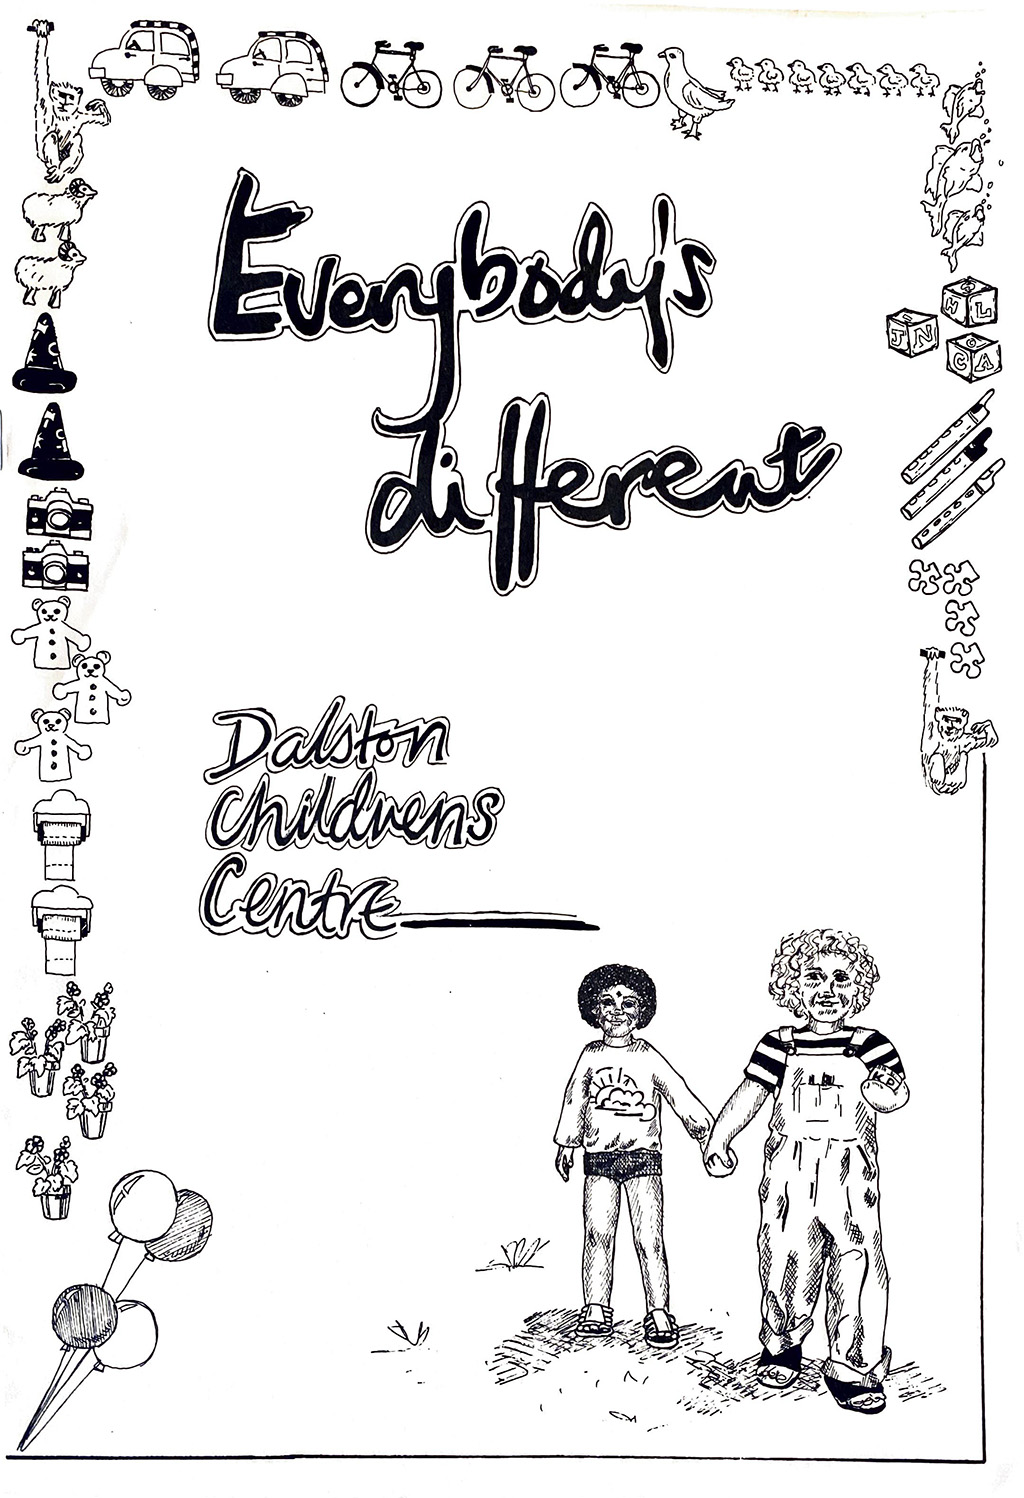 Everybody's
different
J N
L
C A
Dalston
Childrens
Centre